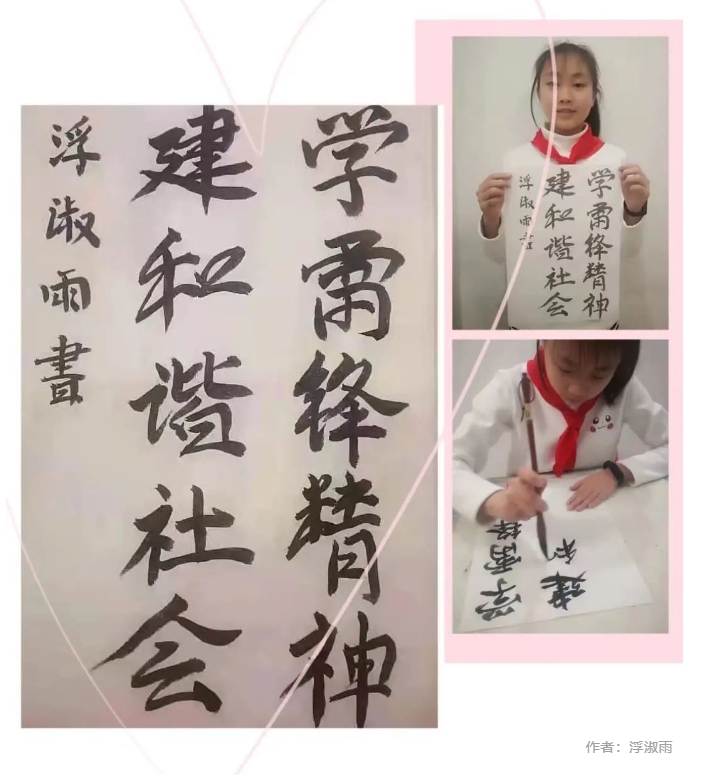 学雷锋精神
建和谐社会
浮淑雨書
学雷锋精神
建和谐社会
浮淑雨書
学雷锋
建和
作者：浮淑雨